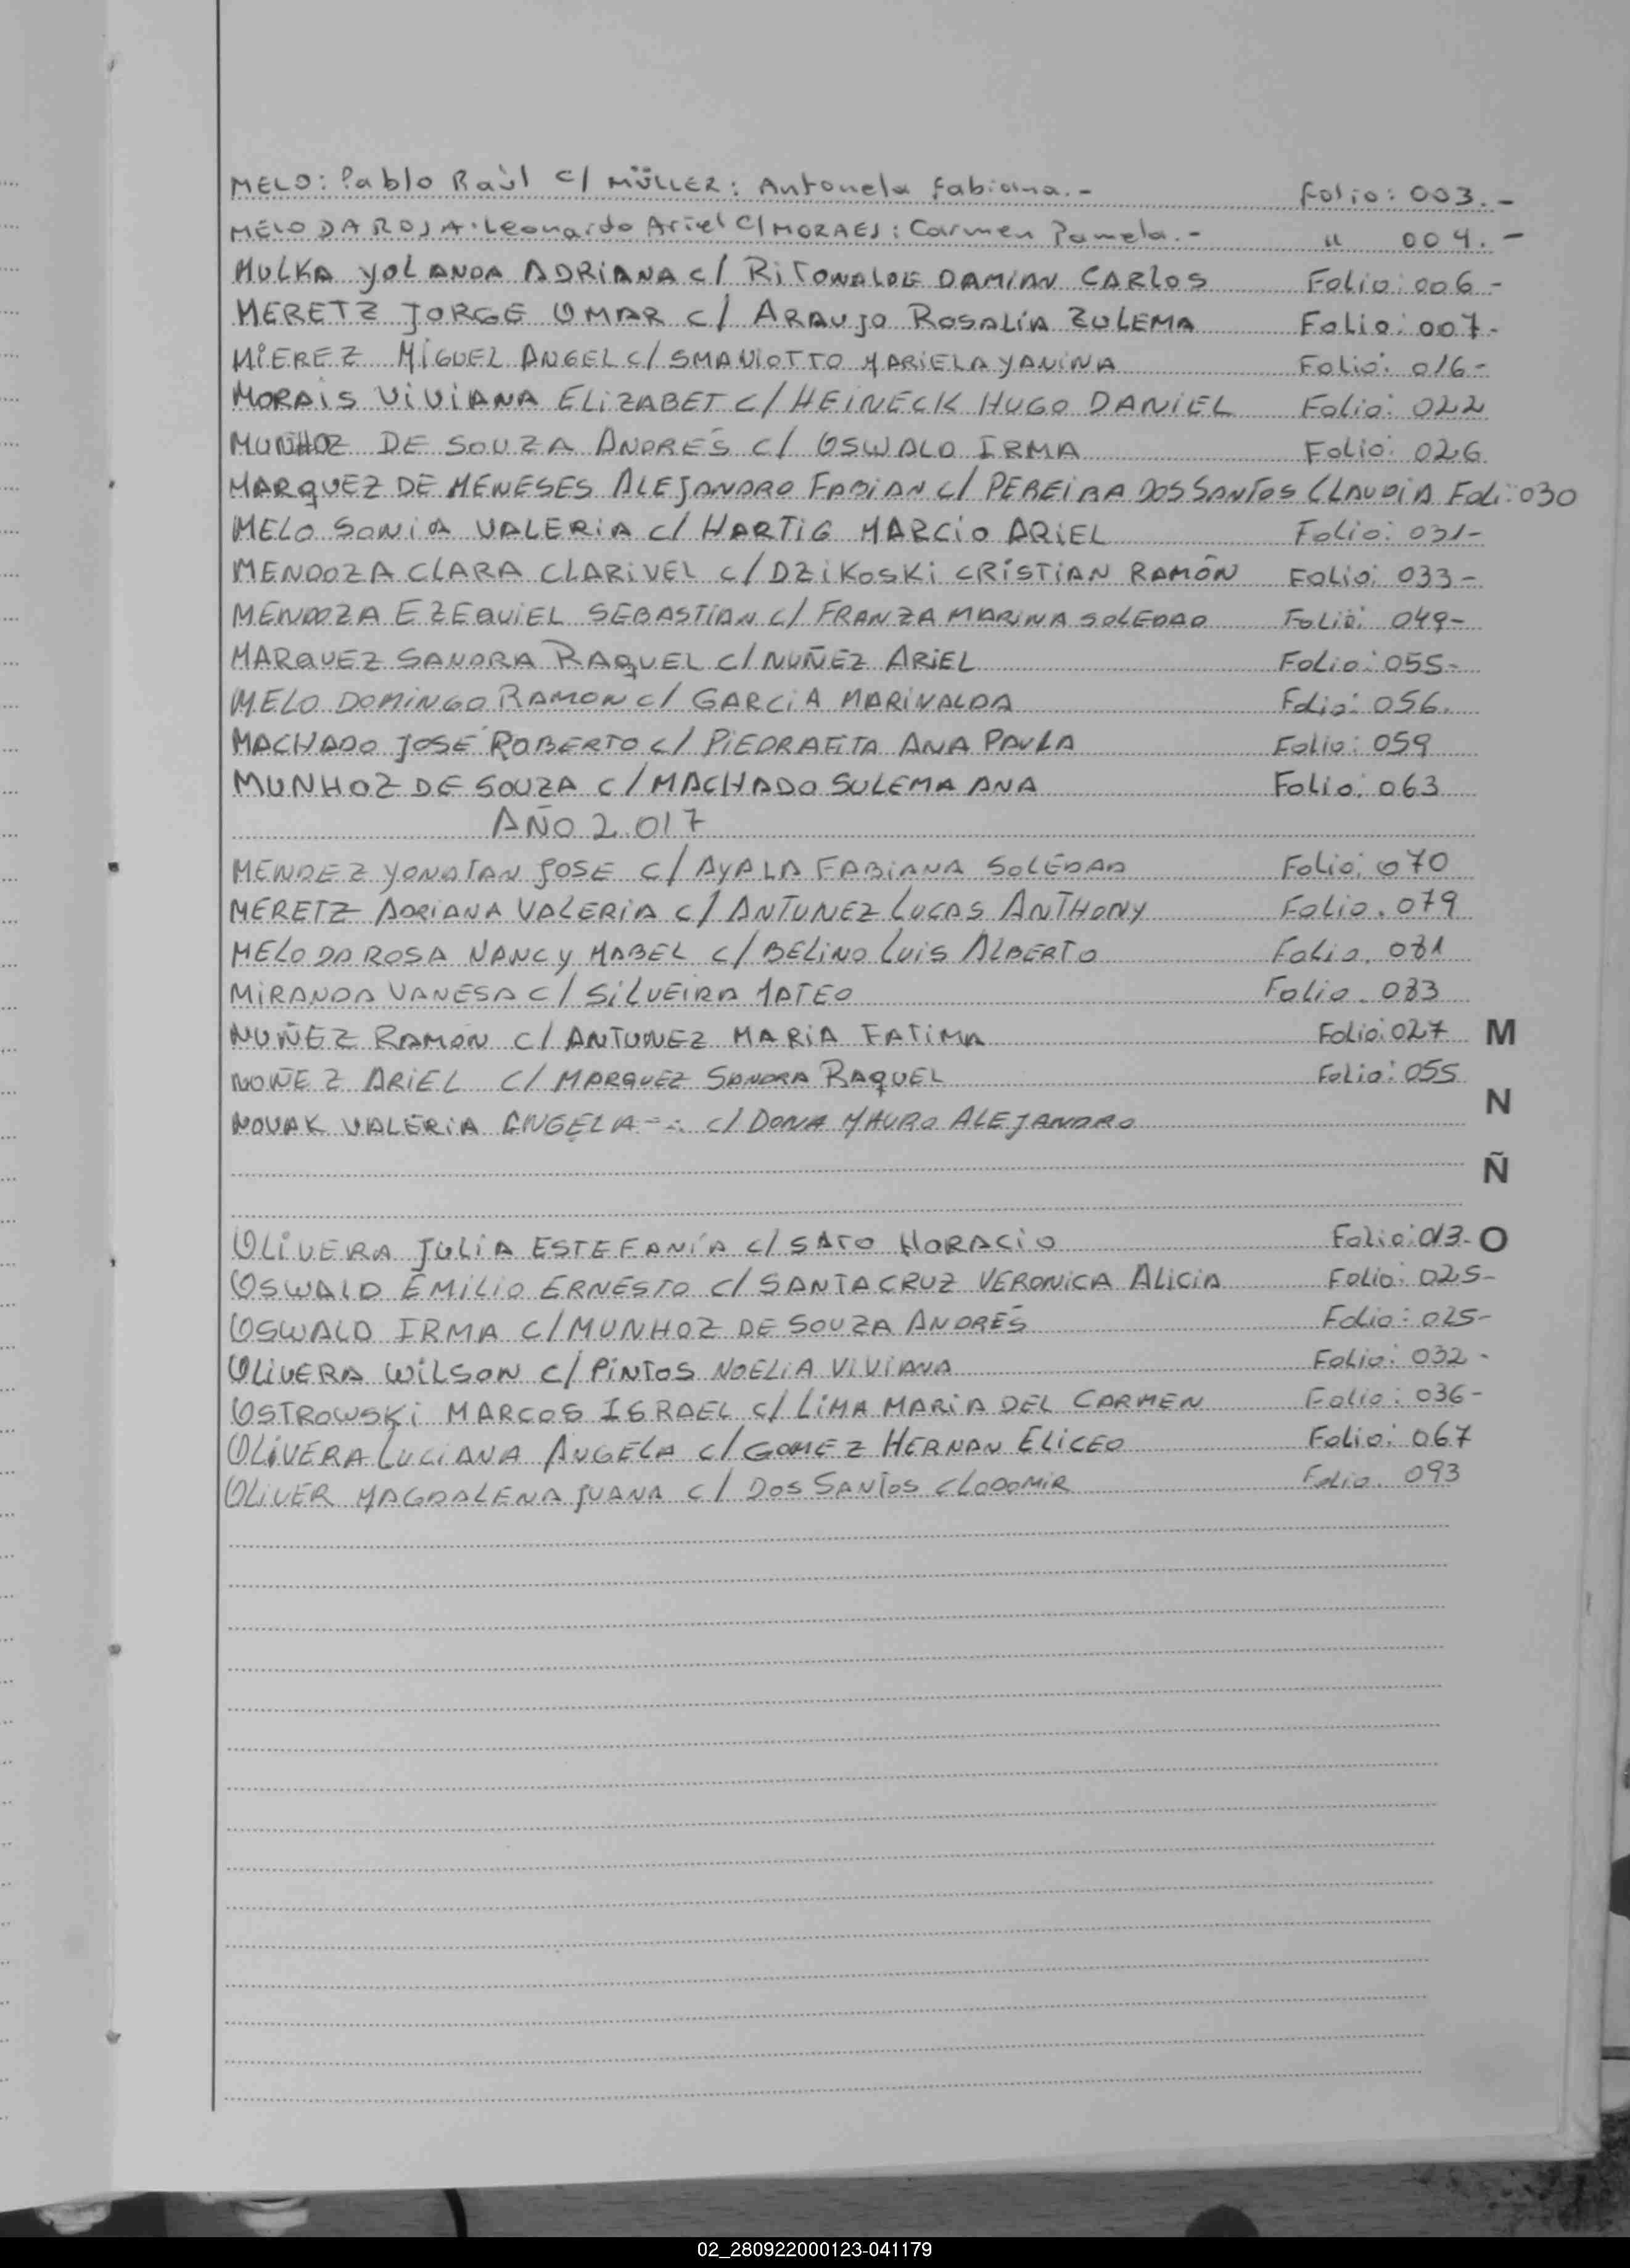 MELO: Pablo Raùl c/ MÜLLER: Antonela Fabiana.- Folio: 003.-
MELO DA ROSA: Leonardo Ariel c/ MORAES: Carmen Pamela.- " 004.-
MULKA YOLANDA ADRIANA c/ RITOWALDE DAMIAN CARLOS Folio: 006-
MERETZ JORGE OMAR c/ ARAUJO ROSALÍA ZULEMA Folio: 007-
MIEREZ MIGUEL ANGEL c/ SMANIOTTO MARIELA YANINA Folio: 016-
MORAIS VIVIANA ELIZABET c/ HEINECK HUGO DANIEL Folio: 022
MUNHOZ DE SOUZA ANDRÉS c/ OSWALD IRMA Folio: 026
MARQUEZ DE MENESES ALEJANDRO FABIAN c/ PEREIRA DOS SANTOS CLAUDIA Foli: 030
MELO SONIA VALERIA c/ HARTIG MARCIO ARIEL Folio: 031-
MENDOZA CLARA CLARIVEL c/ DZIKOSKI CRISTIAN RAMÓN Folio: 033-
MENDOZA EZEQUIEL SEBASTIAN c/ FRANZA MARINA SOLEDAD Folio: 049-
MARQUEZ SANDRA RAQUEL c/ NUÑEZ ARIEL Folio: 055-
MELO DOMINGO RAMON c/ GARCIA MARINALDA Folio: 056.
MACHADO JOSÉ ROBERTO c/ PIEDRAFITA ANA PAULA Folio: 059
MUNHOZ DE SOUZA c/ MACHADO SULEMA ANA Folio: 063
AÑO 2.017
MENDEZ YONATAN JOSE c/ AYALA FABIANA SOLEDAD Folio: 070
MERETZ ADRIANA VALERIA c/ ANTUNEZ LUCAS ANTHONY Folio. 079
MELO DA ROSA NANCY MABEL c/ BELINO LUIS ALBERTO Folio. 081
MIRANDA VANESA c/ SILVEIRA MATEO Folio. 083
NUÑEZ RAMÓN c/ ANTUNEZ MARIA FATIMA Folio: 027 M
NUÑEZ ARIEL c/ MARQUEZ SANDRA RAQUEL Folio: 055
N
NOVAK VALERIA ANGELA c/ DONA MAURO ALEJANDRO
Ñ
OLIVERA JULIA ESTEFANÍA c/ SATO HORACIO Folio: 013- O
OSWALD EMILIO ERNESTO c/ SANTACRUZ VERONICA ALICIA Folio: 025-
OSWALD IRMA c/ MUNHOZ DE SOUZA ANDRÉS Folio: 025-
OLIVERA WILSON c/ PINTOS NOELIA VIVIANA Folio: 032-
OSTROWSKI MARCOS ISRAEL c/ LIMA MARIA DEL CARMEN Folio: 036-
OLIVERA LUCIANA ANGELA c/ GOMEZ HERNAN ELICEO Folio: 067
OLIVER MAGDALENA JUANA c/ DOS SANTOS CLODOMIR Folio. 093
02_280922000123-041179